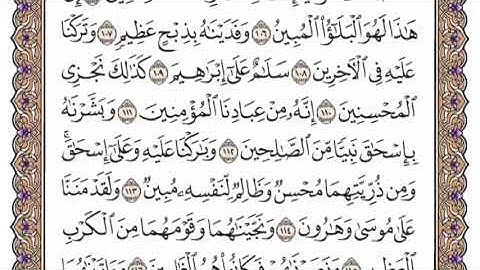 هَٰذَا لَهُوَ ٱلْبَلَٰٓؤُا۟ ٱلْمُبِينُ ١٠٦ وَفَدَيْنَٰهُ بِذِبْحٍ عَظِيمٍ ١٠٧ وَتَرَكْنَا
عَلَيْهِ فِى ٱلْءَاخِرِينَ ١٠٨ سَلَٰمٌ عَلَىٰٓ إِبْرَٰهِيمَ ١٠٩ كَذَٰلِكَ نَجْزِى
ٱلْمُحْسِنِينَ ١١٠ إِنَّهُۥ مِنْ عِبَادِنَا ٱلْمُؤْمِنِينَ ١١١ وَبَشَّرْنَٰهُ
بِإِسْحَٰقَ نَبِيًّا مِّنَ ٱلصَّٰلِحِينَ ١١٢ وَبَٰرَكْنَا عَلَيْهِ وَعَلَىٰٓ إِسْحَٰقَ ۚ
وَمِن ذُرِّيَّتِهِمَا مُحْسِنٌ وَظَالِمٌ لِّنَفْسِهِۦ مُبِينٌ ١١٣ وَلَقَدْ مَنَنَّا
عَلَىٰ مُوسَىٰ وَهَٰرُونَ ١١٤ وَنَجَّيْنَٰهُمَا وَقَوْمَهُمَا مِنَ ٱلْكَرْبِ